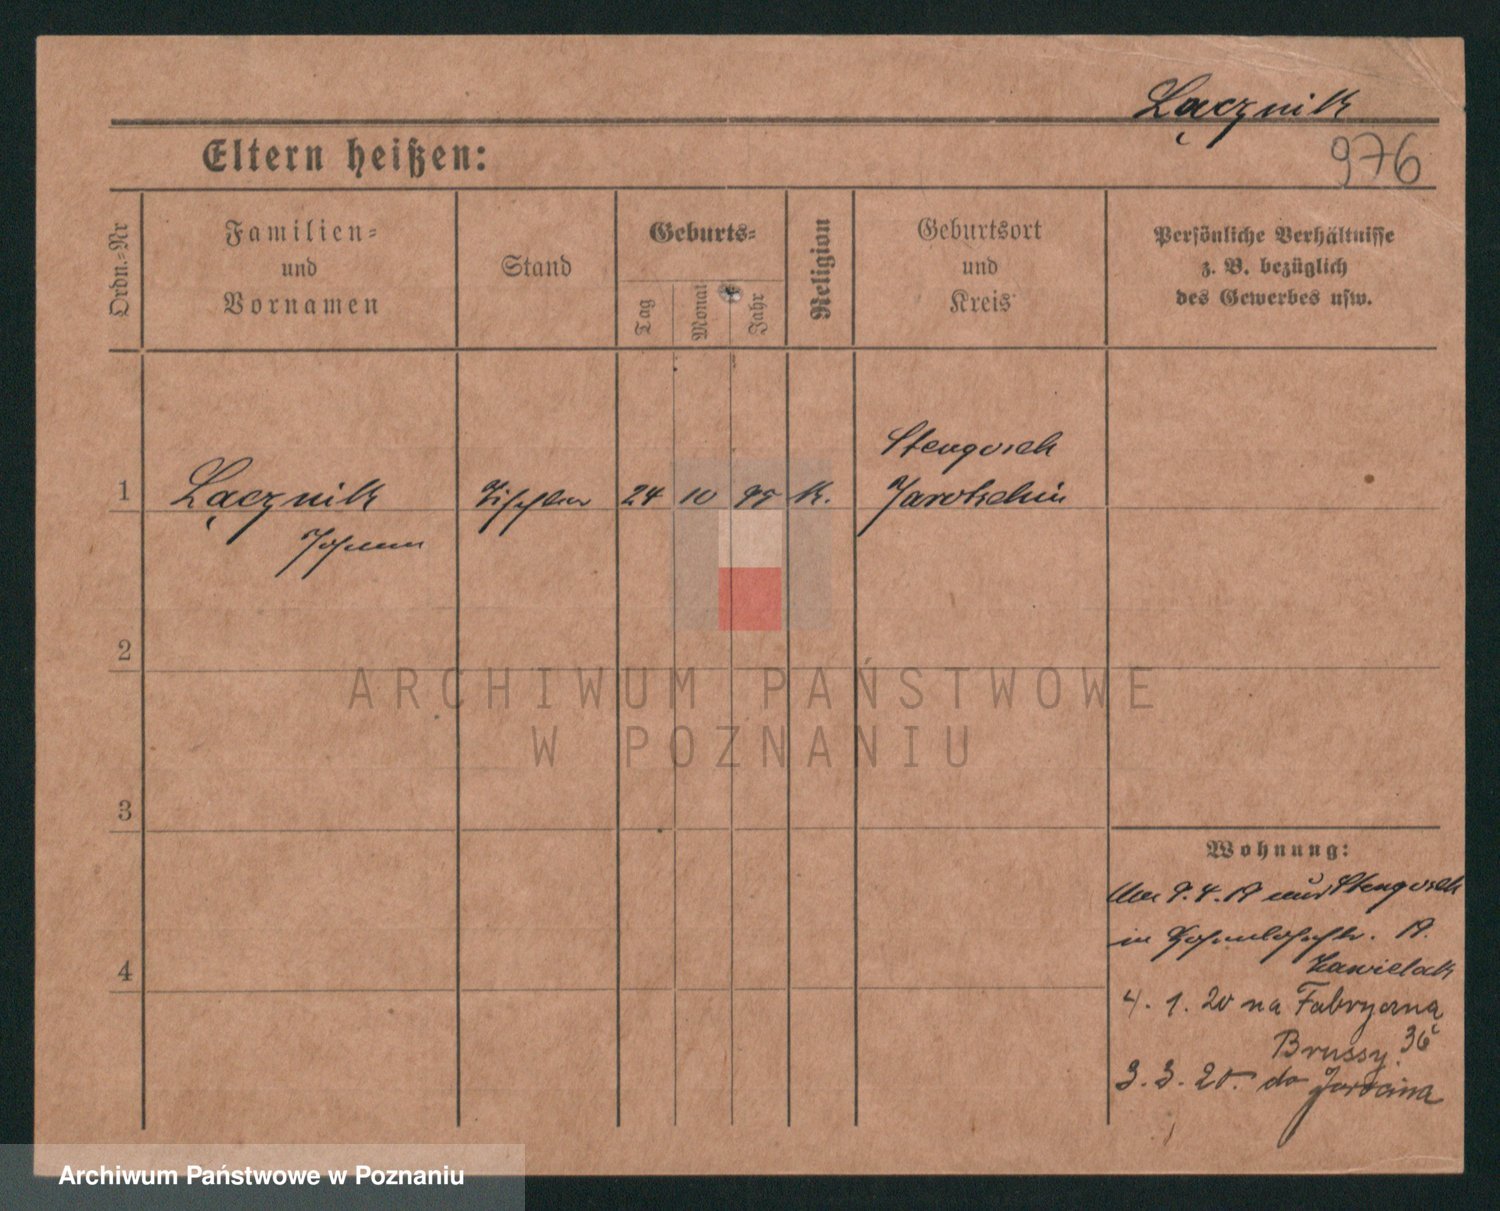 Łącznik
976
Eltern heißen:
Ordn.-Nr
Familien-
und
Vornamen
Stand
Geburts-
Tag
Monat
Jahr
Religion
Geburtsort
und
Kreis
Persönliche Verhältnisse
z. B. bezüglich
des Gewerbes usw.
Stengosch
1 Łącznik Tischler 24 10 95 K. Jarotschin
Johann
2
3
4
Wohnung:
9.4.19 Stengosch
in 19.
Zawielak
4.1.20 na Fabryczną
36
Brussy.
3.3.20. do Jarocina
ARCHIWUM PAŃSTWOWE
W POZNANIU
Archiwum Państwowe w Poznaniu